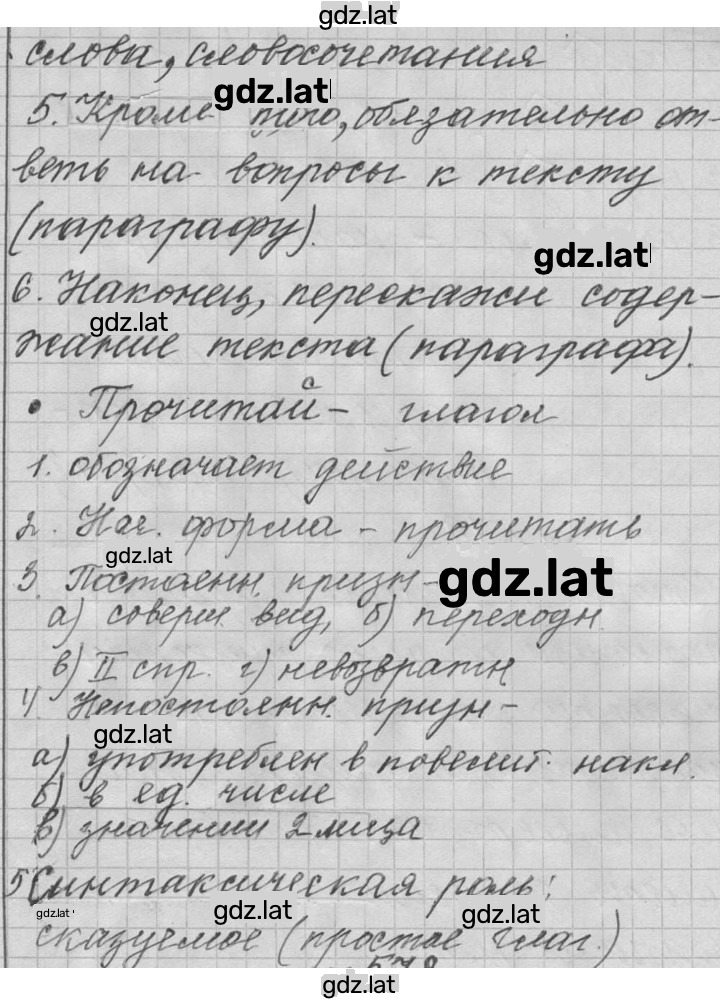 gdz.lat
слова, словосочетания
gdz.lat
5. Кроме того, обязательно от-
веть на вопросы к тексту
(параграфу).
gdz.lat
6. Наконец, перескажи содер-
gdz.lat
жание текста (параграфа).
• Прочитай с – глагол
1. обозначает действие
2. Нач. форма – прочитать
gdz.lat
3. Постоянн. призн –
gdz.lat
а) соверш. вид, б) переходн.
в) II спр. г) невозвратн
4. Непостоянн. призн –
gdz.lat
а) употреблен в повелит. накл.
б) в ед. числе
в) значении 2 лица
5 Синтаксическая роль:
gdz.lat
gdz.lat
gdz.lat
сказуемое (простое глаг.)
578
gdz.lat